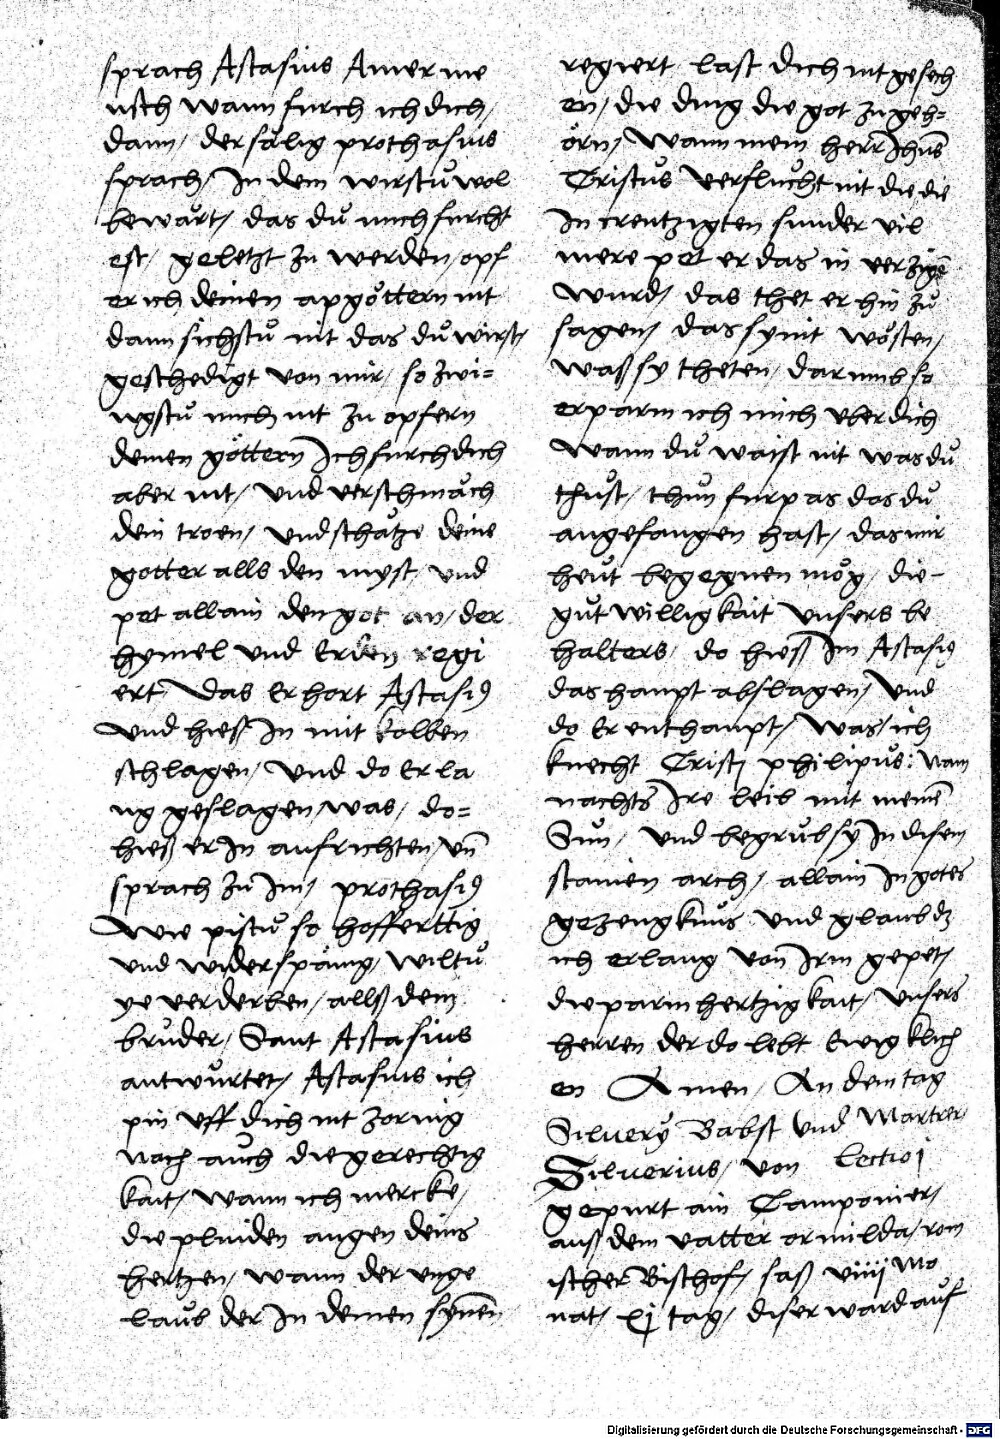 sprach Astasius Amer me
nsch wann furch ich dich /
dann / der sälig prothasius
sprach / In dem wirstu wol
bewärt / das du mich furcht
est / geletzt zu werden / opf
er ich deinen apgöttern nit
dann sichstu nit das du wirst /
geschedigt von mir / so zwi=
ngstu mich nit zu opfern
deinen göttern Ich furch dich
aber nit / und verschmäch
dein troen / und schätze deine
gotter alls den myst / und
pet allain den got an / der
hymel und Erden regi
ert / Das Erhort Astasi9
und hiesz In mit kolben
schlagen / und do Er la
ng geslagen was / do=
hiesz er In aufrichten / vn̄
sprach zu Im / prothasi9
Wie pistu so hofferttig
und widerspänig / wiltu
ye verderben / allsz dein
bruder / Sant Astasius
antwurtet / Astasius ich
pin uff dich nit zornig
nach auch die gerechtig
kait / wann ich mercke /
die plinden augen deins
hertzen / wann der unge
laub der In deinen synēn
regiert last dich nit gesech
en / die ding die got zugeh=
örn / Wann mein herr Ihūs
Cristus verflucht nit die die
In creutzigten sunder vil
mere pet er das in verzigē
wurd / das thet er hin zu
sagen / das sy nit wösten /
wasz sy theten / darumb so
erparm ich mich uber dich
Wann du waist nit was du
thust / thun furpas das du
angefangen hast / das mir
heut begegnen mög / die-
gutwilligkait unsers be
halters / do hiesz Im Astasi9
das haupt abslagen / und
do Er enthaupt / was / ich
knecht Cristi philipus : nam
nachts Ire leib mit meinē
Sun / und begrub sy In disem
stainen arch / allain In gotes
gezeugknus und glaub dz
ich erlang von Irm gepet /
die parmhertzigkait / unsers
herren der do lebt Ewigklich
en Amen / An dem tag
Silvery Babst und Martrer
Silverius / von Lectio j
gepurt ain Camponier /
ausz dem vatter ormilda / rom
ischer Bischof / sasz viiij mo
nat / xj tag / diser ward auf
Digitalisierung gefördert durch die Deutsche Forschungsgemeinschaft - DFG